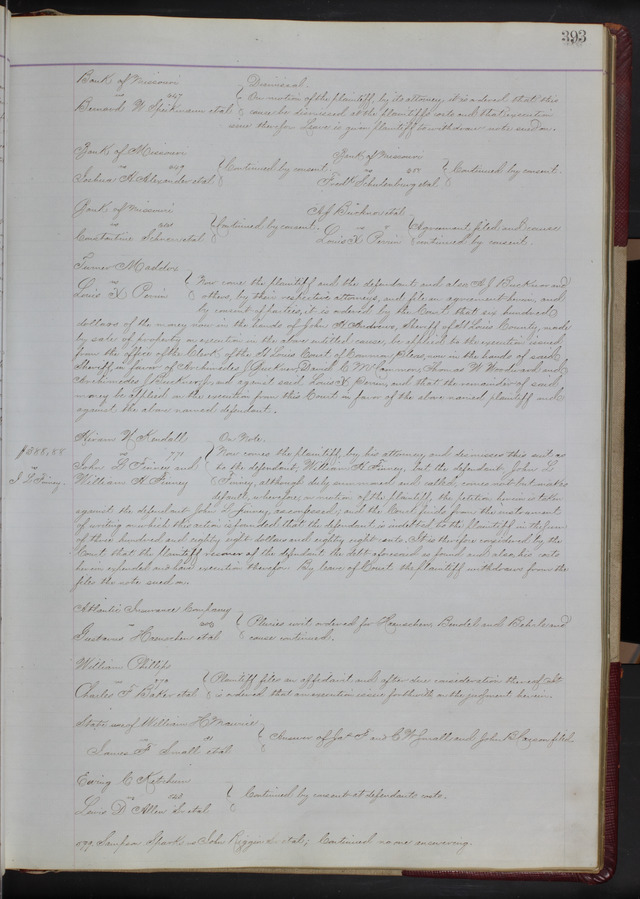 393
Bank of Missouri
vs 247
Bernard W Speikmann et al
Dismissal.
On motion of the plaintiff, by its attorney, it is ordered that this
cause be dismissed at the plaintiff's costs and that execution
issue therefor. Leave is given plaintiff to withdraw note sued on.
Bank of Missouri
vs
Joshua H Alexander et al
Continued by consent.
Bank of Missouri
vs
Fredk Schulenburg et al
Continued by consent.
Bank of Missouri
vs
Constantine et al
Continued by consent.
A J Buckner et al
vs
Louis X Perrin
Agreement filed and cause
continued by consent.
Turner Maddox
vs
Louis X Perrin
Now come the plaintiff and the defendant, and also A J Buckner and
others, by their respective attorneys, and file an agreement herein, and
by consent of parties, it is ordered by the Court that six hundred
dollars of the money now in the hands of John H Andrews, Sheriff of St Louis County, made
by sale of property on execution in the above entitled cause, be applied to the execution issued
from the office of the Clerk of the St Louis Court of Common Pleas, now in the hands of said
Sheriff, in favor of Archimedes J Buckner, Daniel C McCannon, Thomas W Woodward and
Archimedes J Buckner jr, and against said Louis X Perrin, and that the remainder of said
money be applied on the execution from this Court in favor of the above named plaintiff and
against the above named defendant.
Hiram W Kendall
vs 771
John L Finney and
William H Finney
On Note.
Now comes the plaintiff, by his attorney, and dismisses this suit as
to the defendant, William H Finney, but the defendant John L
Finney, although duly summoned and called, comes not but makes
default, wherefore, on motion of the plaintiff, the petition herein is taken
against the defendant John L Finney, as confessed; and the Court finds from the instrument
of writing on which this action is founded, that the defendant is indebted to the plaintiff in the sum
of three hundred and eighty eight dollars and eighty eight cents. It is therefore considered by the
Court that the plaintiff recover of the defendant the debt aforesaid as found and also his costs
herein expended and have execution therefor. By leave of Court the plaintiff withdraws from the
files the note sued on.
$388.88
vs
J L Finney
Atlantic Insurance Company
vs
Gustavus Haenschen et al
Pluries writ ordered for Haenschen, Bendel and Bahrle and
cause continued.
William Phillips
vs
Charles F Baker et al
Plaintiff files an affidavit, and after due consideration thereof, it
is ordered that an execution issue forthwith on the judgment herein.
State use of William H
vs
James F Small et al
Answer of Jas F and C W Small and John B filed.
Ewing C Ketchum
vs
Louis D Allen et al
Continued by consent at defendants costs.
Sampson Sparks vs John Riggin Sr et al; Continued no one answering.